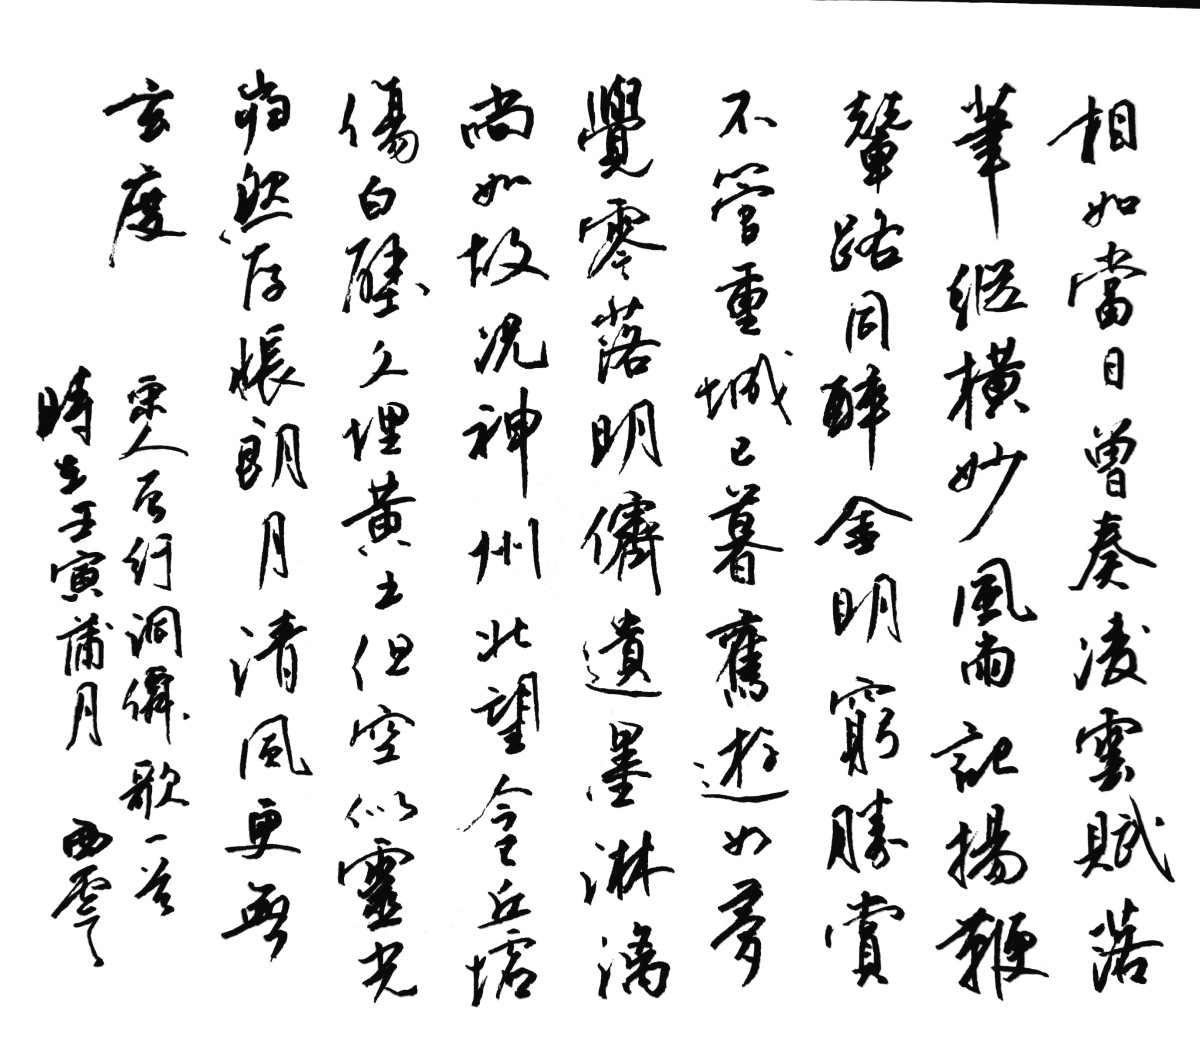 相如當日曾奏凌雲賦落
筆縱橫妙風雨記揚鞭
輦路同醉金明窮勝賞
不管重城已暮舊遊如夢
覺零落明儕遺墨淋漓
尚如故況神州北望今已丘墟
傷白璧久埋黃土但空似靈光
巋然存悵朗月清風更無
玄度
宋人洞僊歌一首
時在壬寅蒲月 西